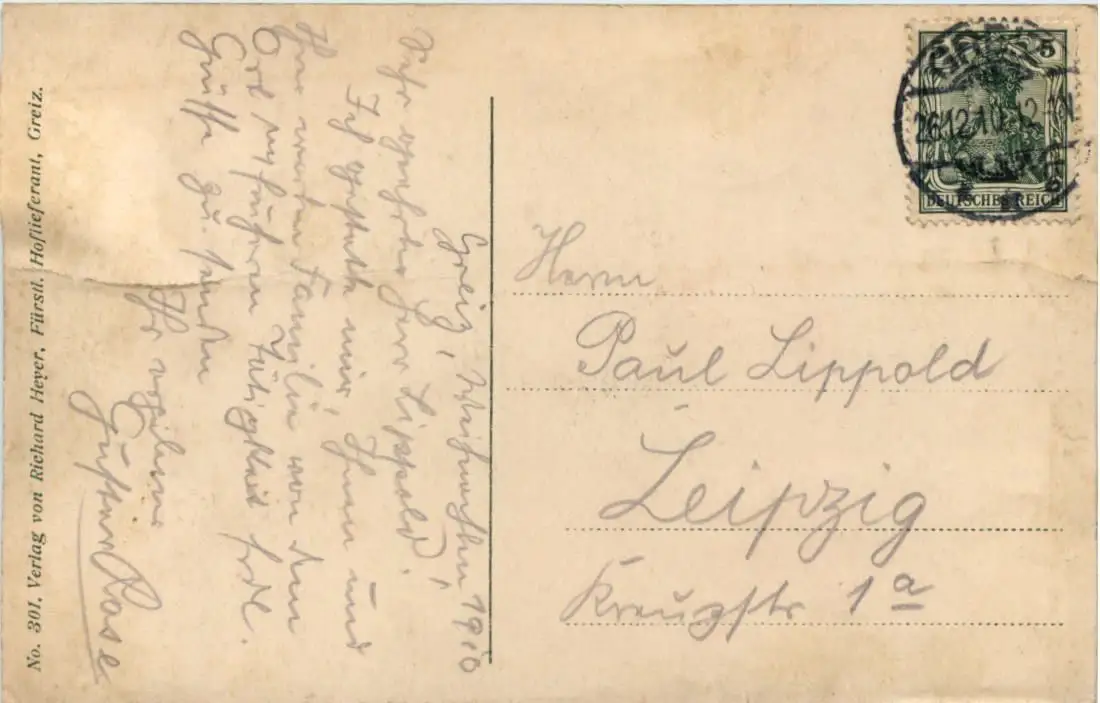 Greiz, Weihnachten, 1910
Sehr geehrter Herr Lippold!
Ich gestatte mir, Ihnen und
Ihrer werten Familie von dem
Ort frdl.
Grüße zu senden
Ihr
Gustav Rose
No. 301. Verlag von Richard Heyer, Fürstl. Hoflieferant, Greiz.
5
GREIZ
26.12.10
DEUTSCHES REICH
Herrn
Paul Lippold
Leipzig
Kreuzstr 1a